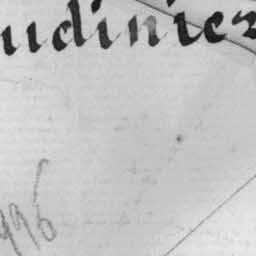 udinier
496